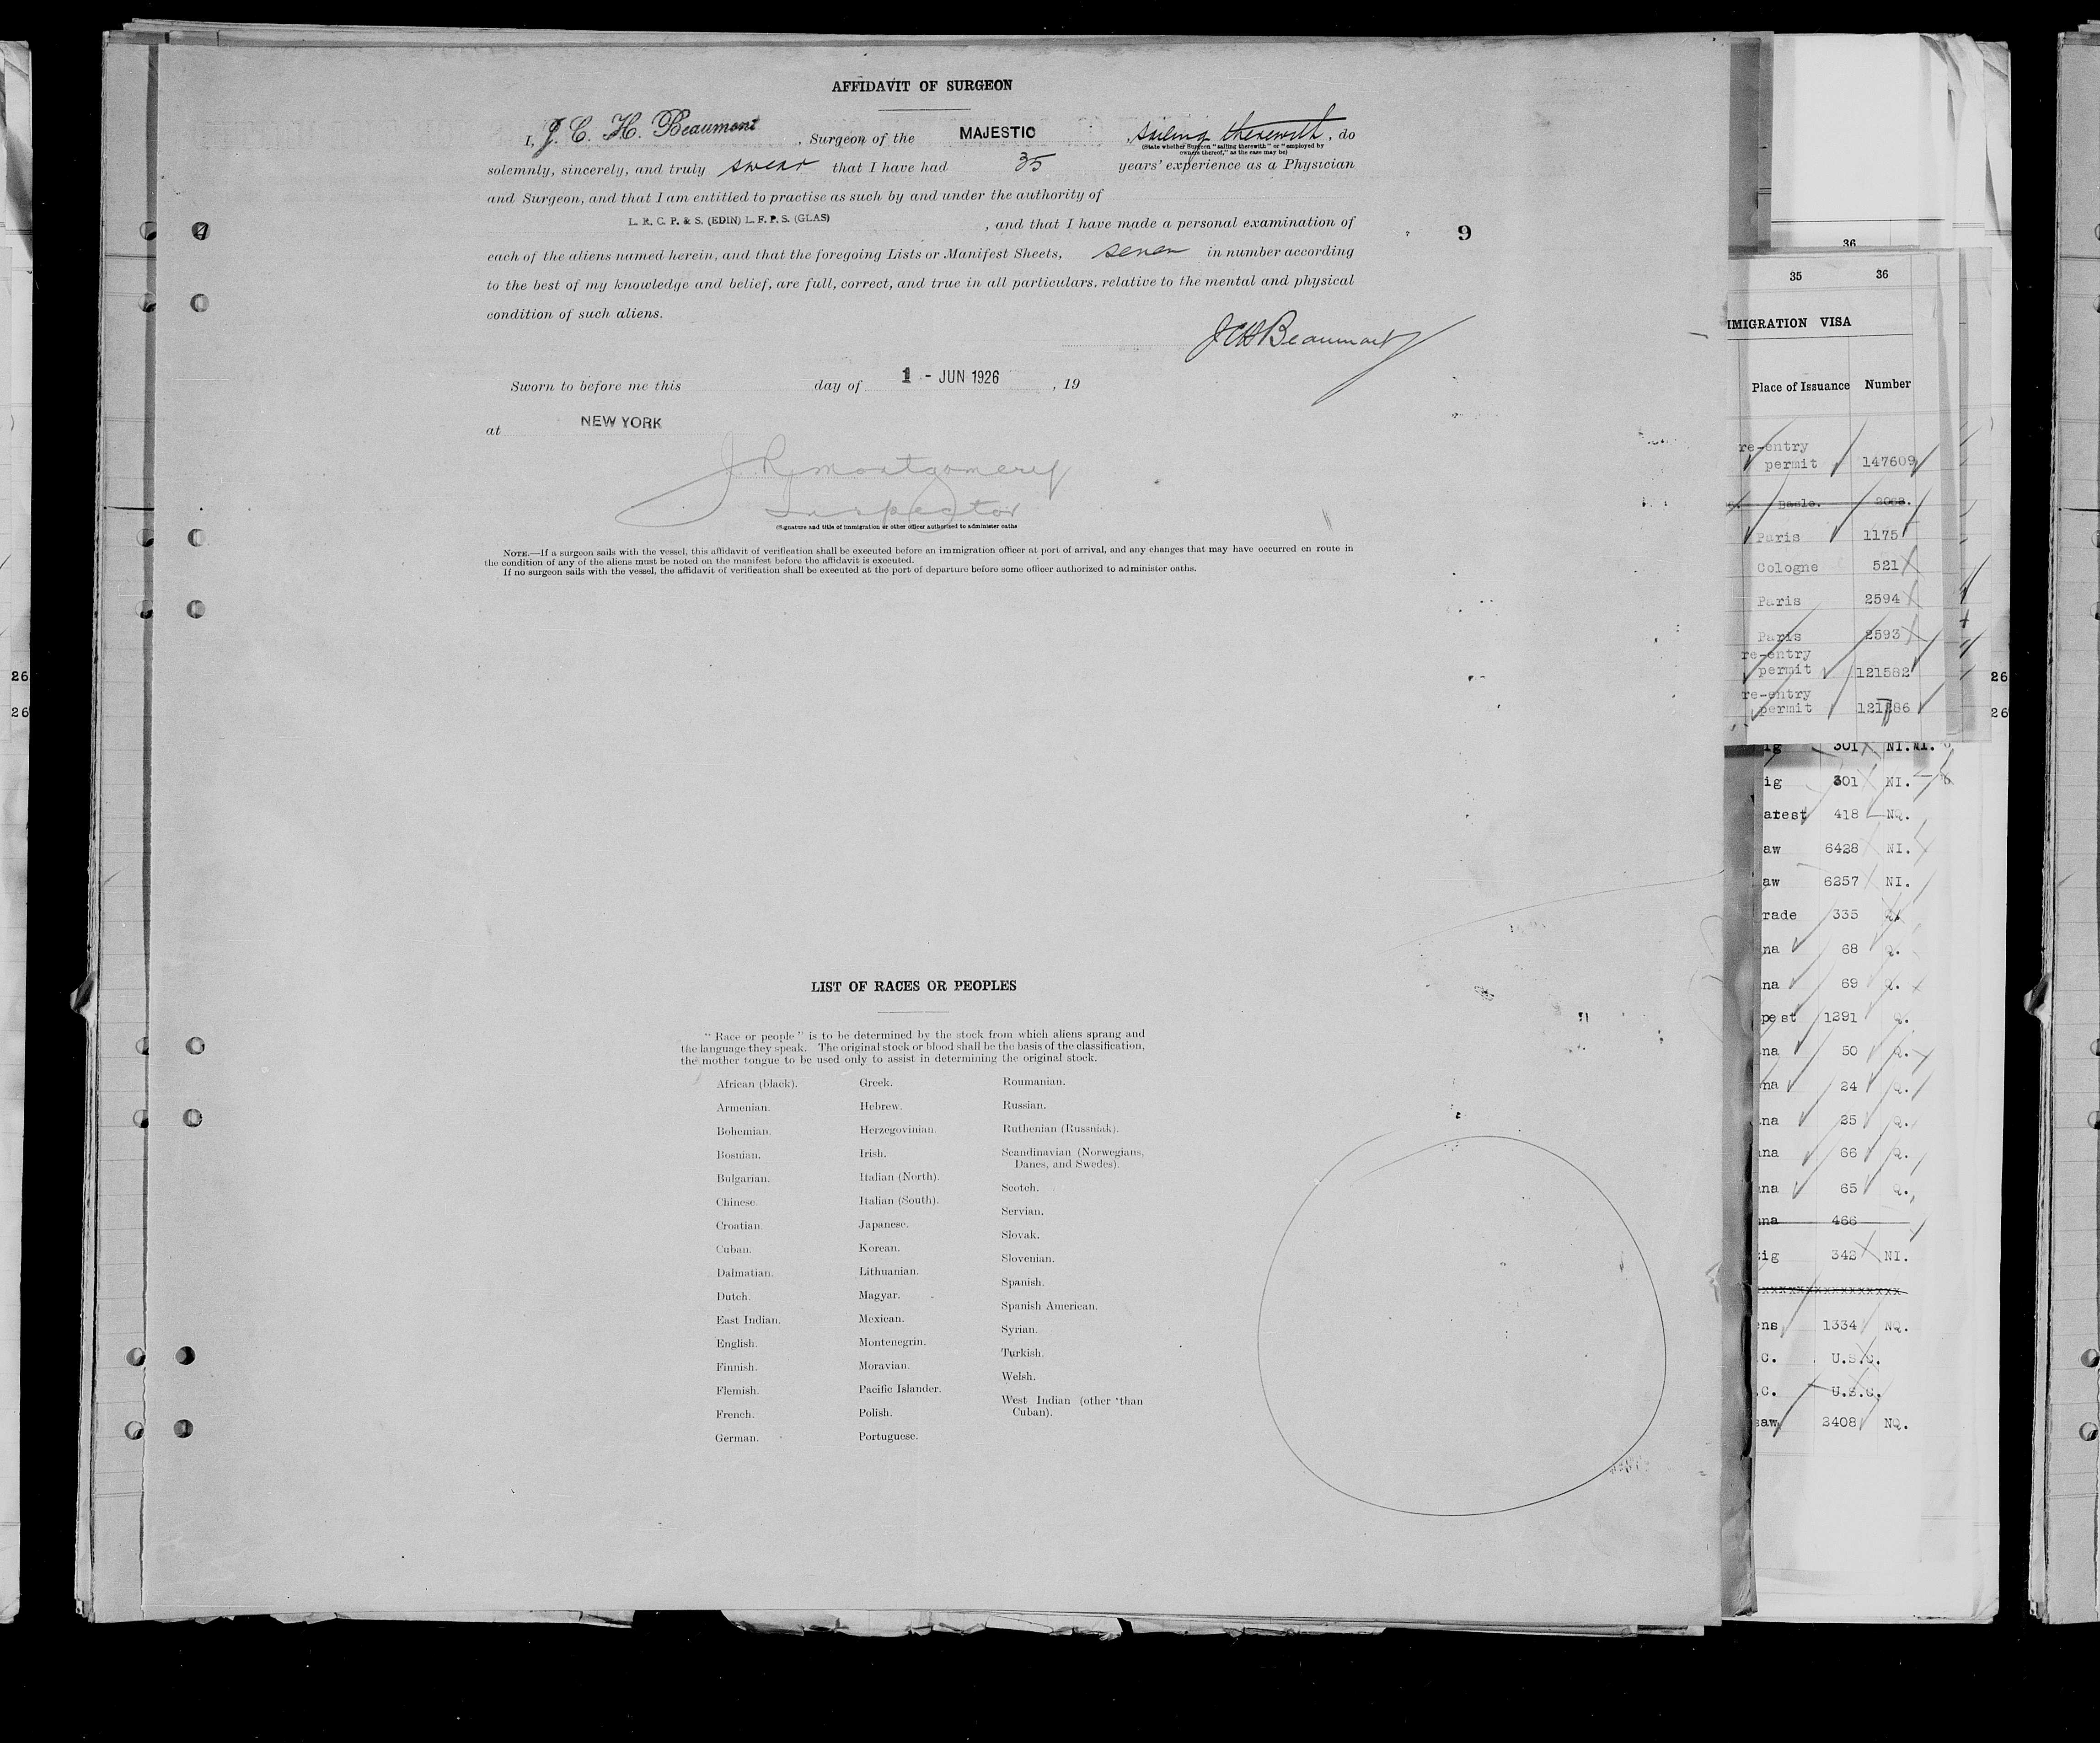 AFFIDAVIT OF SURGEON
I, J. C. H. Beaumont, Surgeon of the MAJESTIC, sailing therewith, do
(State whether Surgeon "sailing therewith" or "employed by
owners thereof," as the case may be)
solemnly, sincerely, and truly swear that I have had 35 years' experience as a Physician
and Surgeon, and that I am entitled to practise as such by and under the authority of
L. R. C. P. & S. (EDIN) L. F. P. S. (GLAS), and that I have made a personal examination of
9
each of the aliens named herein, and that the foregoing Lists or Manifest Sheets, seven in number according
to the best of my knowledge and belief, are full, correct, and true in all particulars, relative to the mental and physical
condition of such aliens.
JCHBeaumont
Sworn to before me this day of 1 - JUN 1926, 19
at NEW YORK
J. R. Montgomery
Inspector
(Signature and title of immigration or other officer authorized to administer oaths
NOTE.—If a surgeon sails with the vessel, this affidavit of verification shall be executed before an immigration officer at port of arrival, and any changes that may have occurred en route in
the condition of any of the aliens must be noted on the manifest before the affidavit is executed.
If no surgeon sails with the vessel, the affidavit of verification shall be executed at the port of departure before some officer authorized to administer oaths.
LIST OF RACES OR PEOPLES
"Race or people" is to be determined by the stock from which aliens sprang and
the language they speak. The original stock or blood shall be the basis of the classification,
the mother tongue to be used only to assist in determining the original stock.
African (black).
Armenian.
Bohemian.
Bosnian.
Bulgarian.
Chinese.
Croatian.
Cuban.
Dalmatian.
Dutch.
East Indian.
English.
Finnish.
Flemish.
French.
German.
Greek.
Hebrew.
Herzegovinian.
Irish.
Italian (North).
Italian (South).
Japanese.
Korean.
Lithuanian.
Magyar.
Mexican.
Montenegrin.
Moravian.
Pacific Islander.
Polish.
Portuguese.
Roumanian.
Russian.
Ruthenian (Russniak).
Scandinavian (Norwegians,
Danes, and Swedes).
Scotch.
Servian.
Slovak.
Slovenian.
Spanish.
Spanish American.
Syrian.
Turkish.
Welsh.
West Indian (other than
Cuban).
36
35 36
IMIGRATION VISA
Place of Issuance Number
re-entry
permit 147609
Basle.
Paris 1175
Cologne 521
Paris 2594
Paris 2593
re-entry
permit 121582
re-entry
permit
26
26
26
26
ig 301 NI.
ig 301 NI.
arest 418 NQ.
aw 6428 NI.
aw 6257 NI.
rade 335
na 68 Q.
na 69 Q.
pest 1291 Q.
na 50 Q.
na 24 Q.
na 25 Q.
na 66 Q.
na 65 Q.
na 466
ig 342 NI.
xxxxxxxxxxxxxxxxx
ns 1334 NQ.
.C. U.S.C.
.C. U.S.C.
saw 2408 NQ.